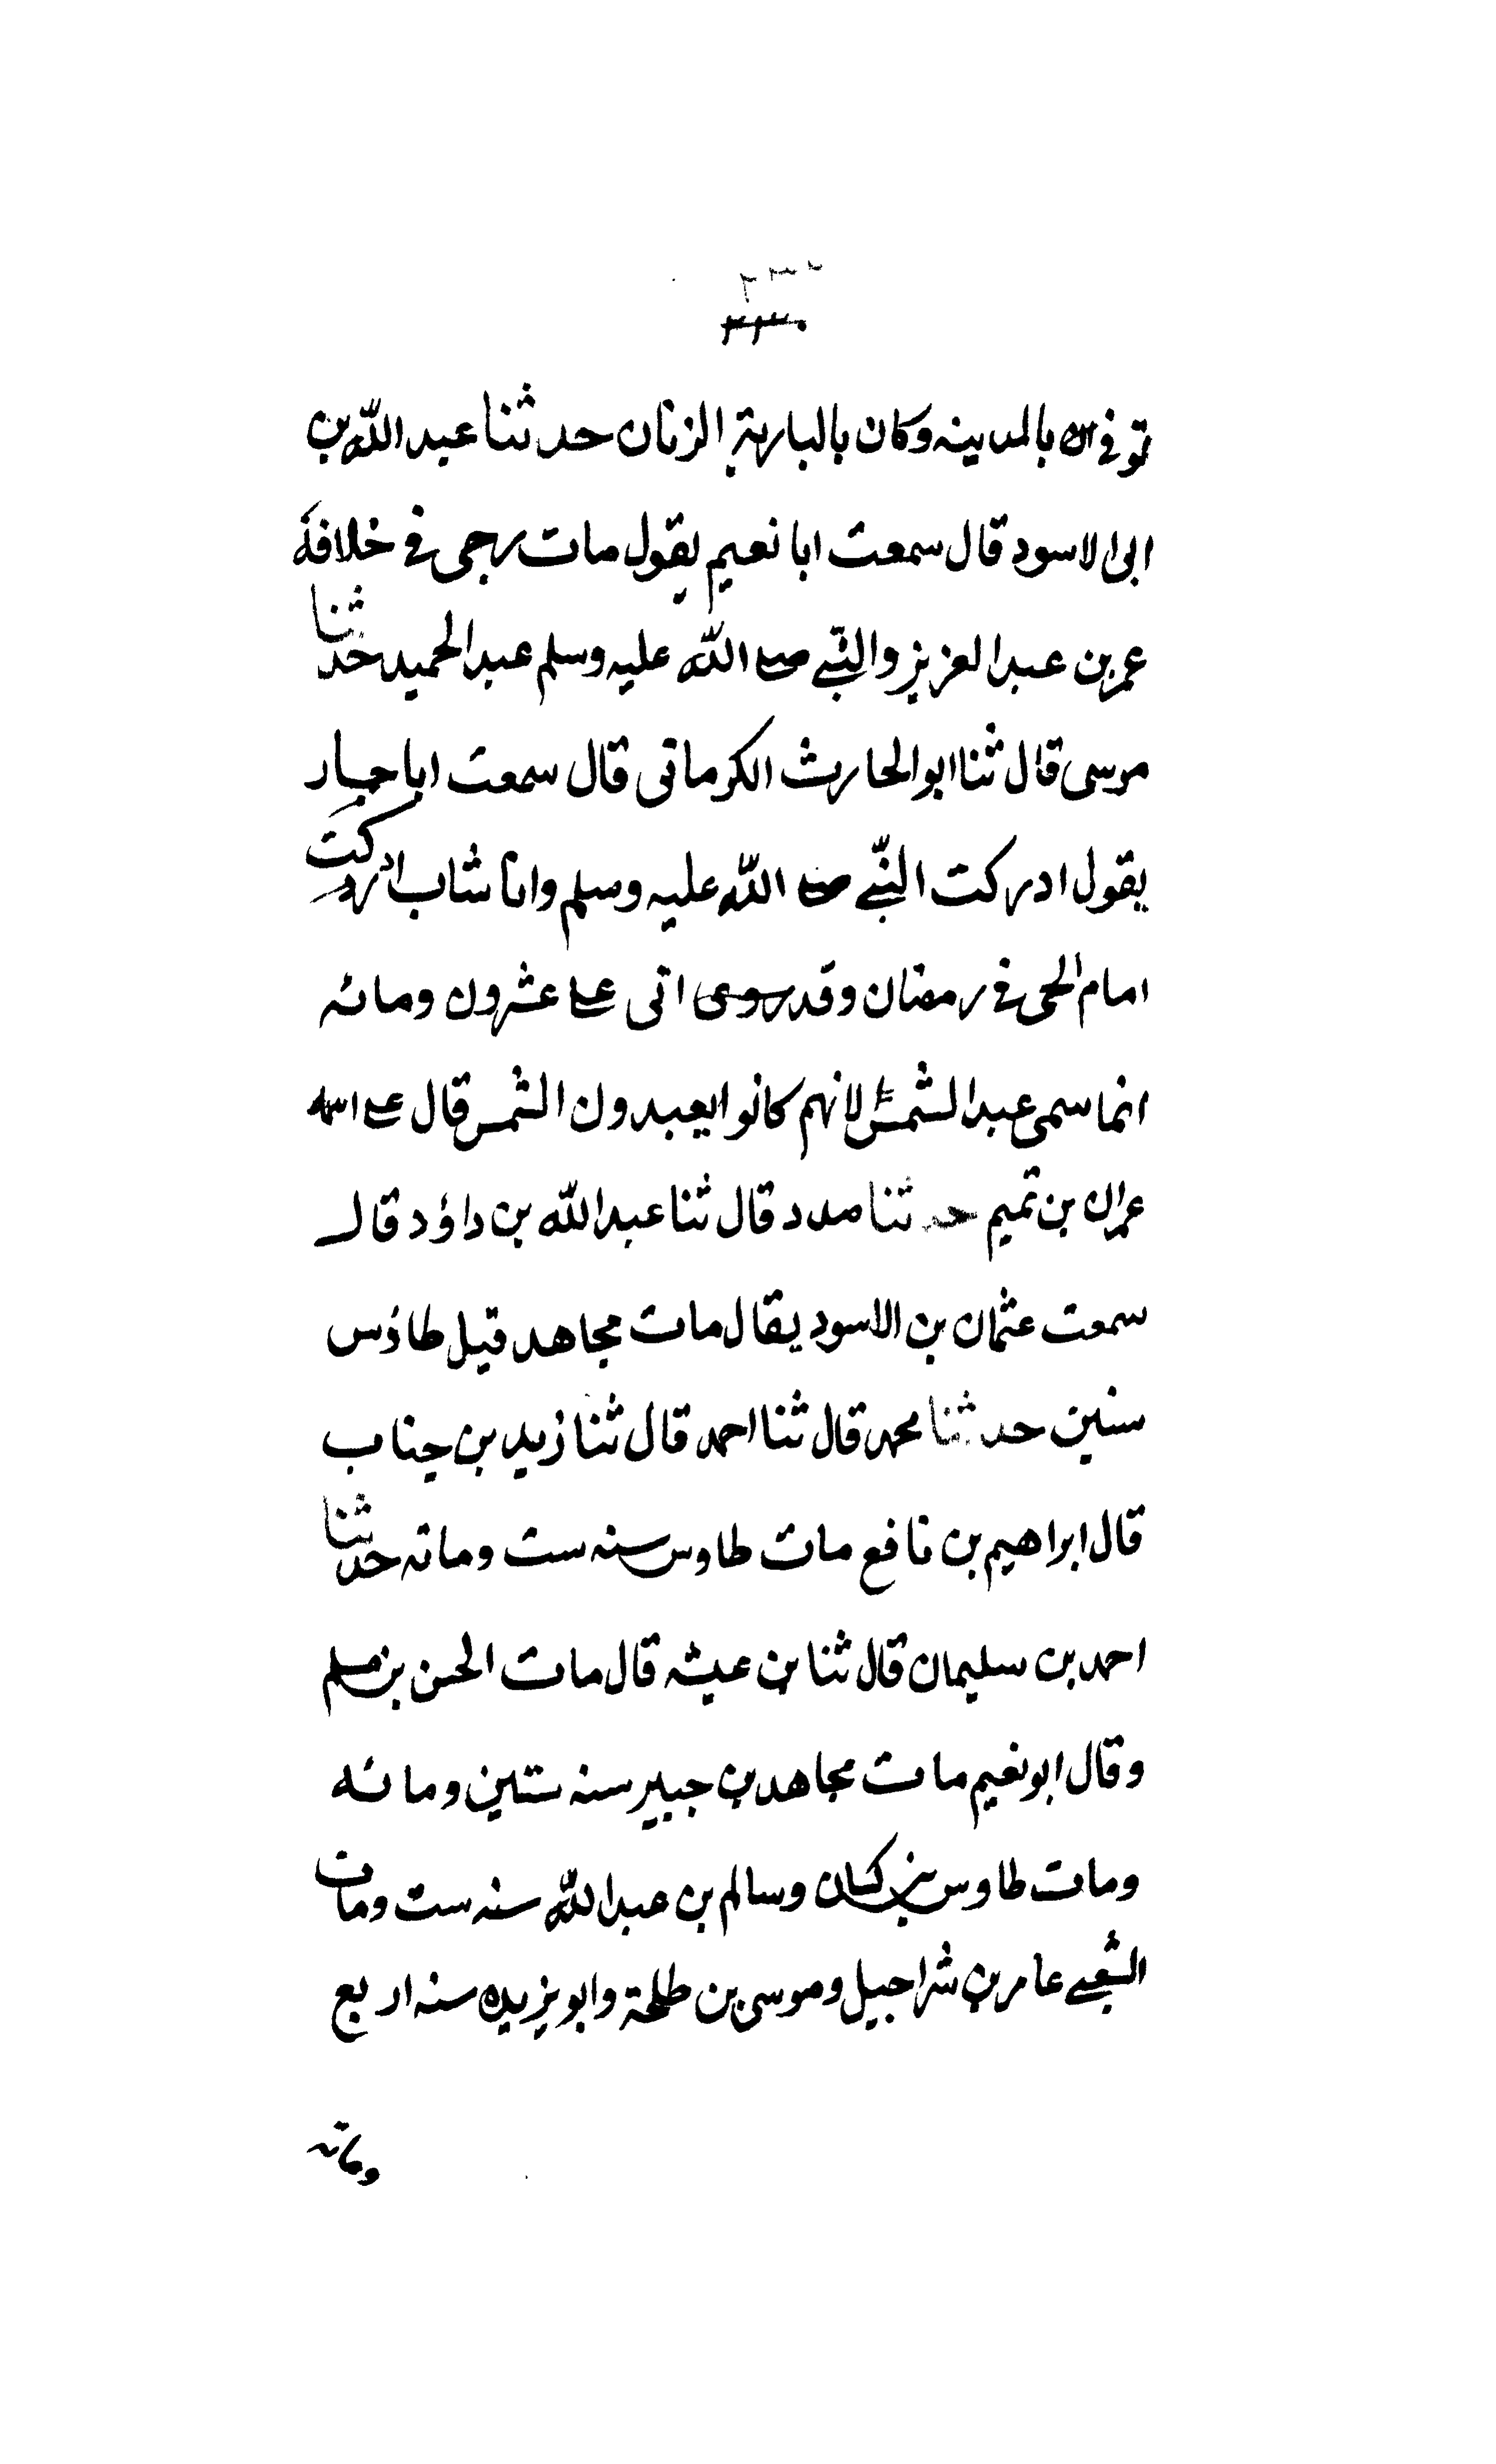 توفى بالمدينه وكان بالباربة الزنان حدثنا عبد الله بن
ابى الاسود قال سمعت ابا نعيم يقول مات رجى فى خلافة
عمر بن عبد العزيز والنبى صلى الله عليه وسلم عبد الحميد حدثنا
مرسى قال ثنا ابو الحارث الكرمانى قال سمعت ابا جبار
يقول ادركت النبى صلى الله عليه وسلم وانا شاب ادركت
امام الحى فى رمضان وقد روى اتى على عشرون ومائه
انما سمى عبد الشمس لانهم كانوا يعبدون الشمس قال على اسمه
عمران بن تميم حدثنا مدد قال ثنا عبد الله بن داؤد قال
سمعت عثمان بن الاسود يقال مات مجاهد قبل طاؤس
سنين حدثنا محمد قال ثنا احمد قال ثنا زيد بن حباب
قال ابراهيم بن نافع مات طاوس سنه ست ومائه حدثنا
احمد بن سليمان قال ثنا بن عيينه قال مات الحسن بن مسلم
وقال ابو نعيم مات مجاهد بن جبير سنه ستين ومائه
ومات طاوس بن كسان وسالم بن عبد الله سنه ست ومات
الشعبى عامر بن شراحيل وموسى بن طلحة وابو يزيده سنه اربع
ومائه